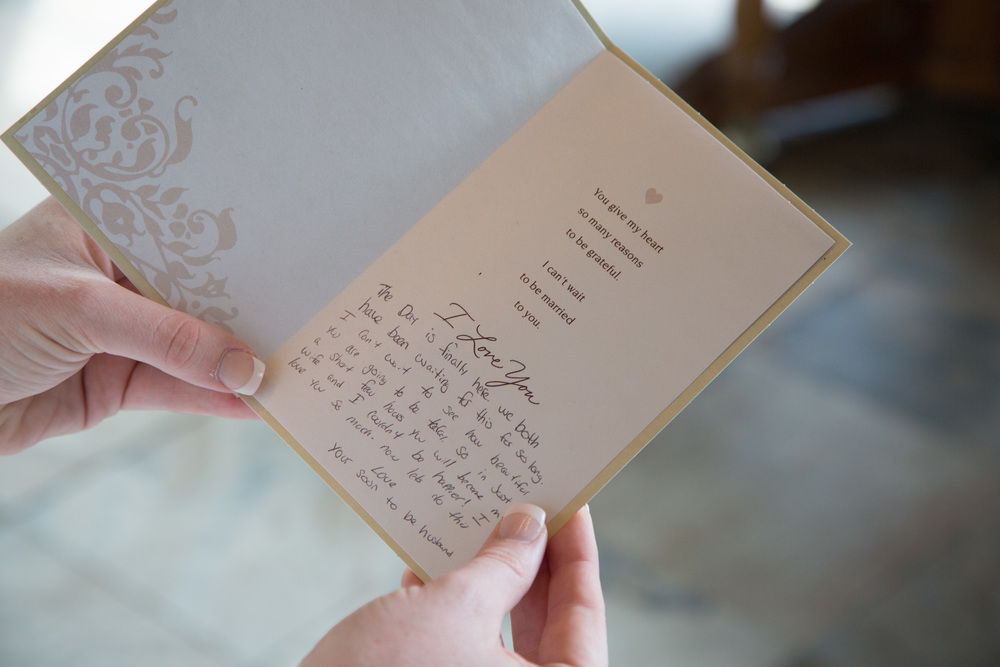 You give my heart
so many reasons
to be grateful.
I can't wait
to be married
to you.
I Love You
The Day is finally here we both
have been waiting for this for so long.
I can't wait to see how beautiful
you are going to be later. So in Just
a short few hours you will become m
wife and I couldn't be happier! I
love you so much. now lets do this
Your Love
Soon to be husband